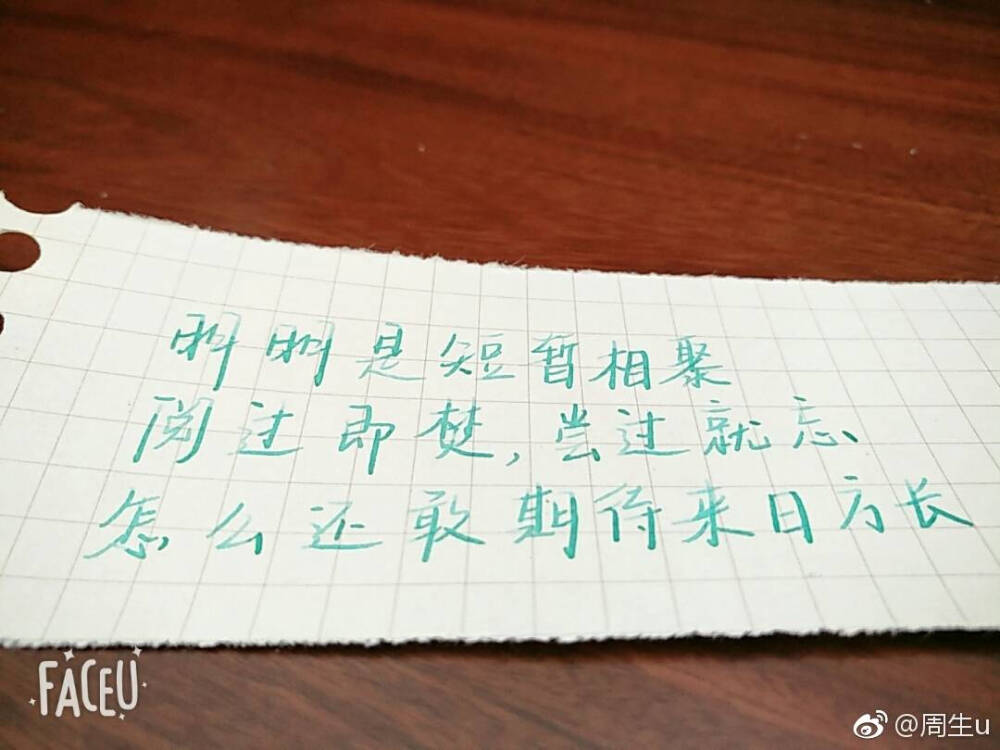 明明是短暂相聚
阅过即焚,尝过就忘、
怎么还敢期待来日方长
FACEU
@周生u